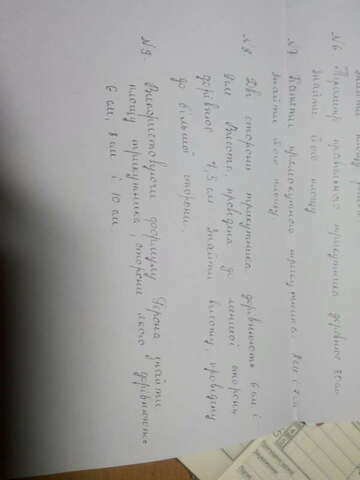 знайти площу
№6 Периметр правильного трикутника дорівнює
Знайти його площу
№7 Катети прямокутного трикутника 8см і 7см
Знайти його площу
№8. Дві сторони трикутника дорівнюють 6 см і
8 см. Висота проведена до меншої сторони
дорівнює 4,5 см. Знайти висоту, проведену
до більшої сторони.
№9. Використовуючи формулу Герона знайти
площу трикутника, сторони якого дорівнюють
6 см, 8 см і 10 см.